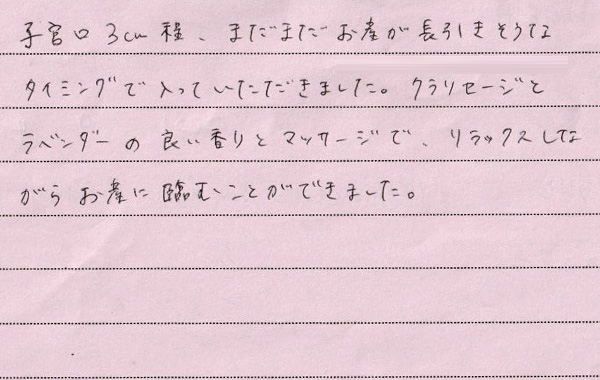 子宮口3cm程、まだまだお産が長引きそうな
タイミングで入っていただきました。クラリセージと
ラベンダーの良い香りとマッサージで、リラックスしな
がらお産に臨むことができました。